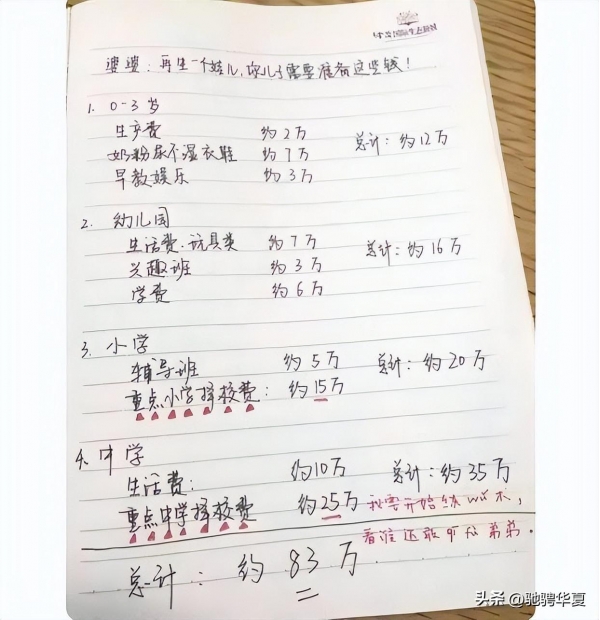 国际生态
婆婆：再生一个娃儿，你儿子需要准备这些钱！
1. 0-3岁
生产费 约2万
奶粉尿不湿衣鞋 约7万 总计：约12万
早教娱乐 约3万
2. 幼儿园
生活费、玩具类 约7万 总计：约16万
兴趣班 约3万
学费 约6万
3. 小学
辅导班 约5万 总计：约20万
重点小学择校费： 约15万
4. 中学
生活费： 约10万 总计：约35万
重点中学择校费 约25万 我要开始练 术，
看谁还敢 弟弟.
总计： 约83万
头条 @驰骋华夏